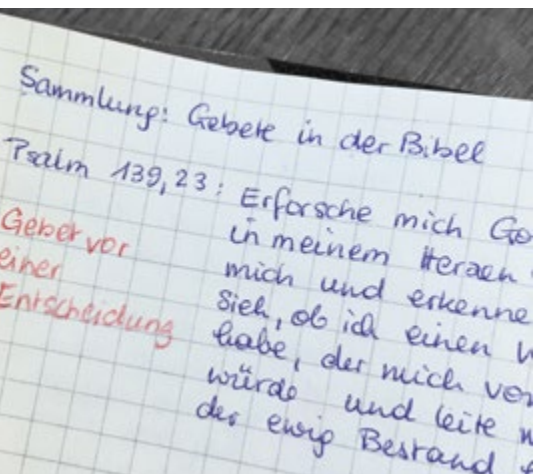 Sammlung: Gebete in der Bibel
Psalm 139,23: Erforsche mich
in meinem Herzen
mich und erkenne
Sieh, ob ich einen
habe, der mich
würde und leite
der ewig Bestand
Gebet vor
einer
Entscheidung